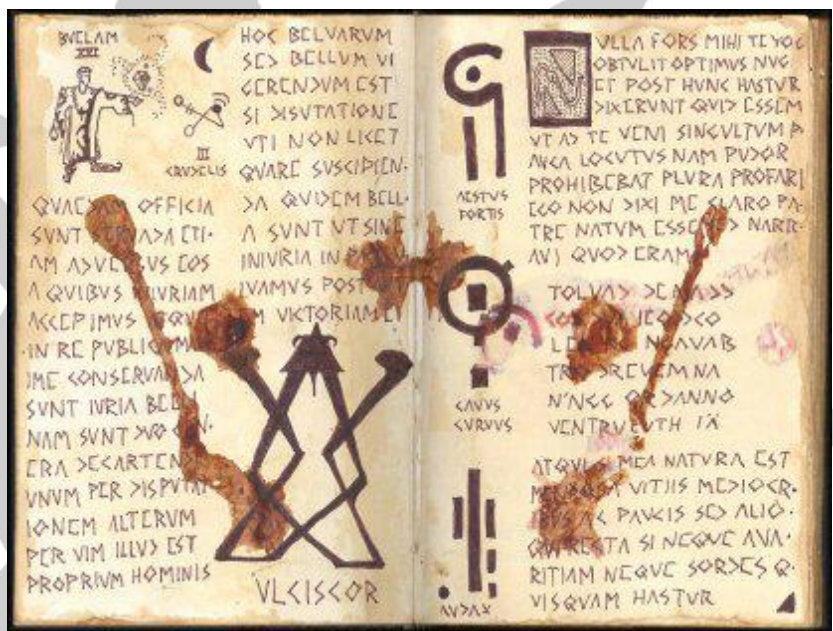 BVELAM
XXI
III
CRVDELIS
QVAEDAM OFFICIA
SVNT ETI·
AM ADVERSVS EOS
A QVIBVS INIVRIAM
ACCEPIMVS
·IN RE
IME
SVNT IVRIA
NAM SVNT DVO
ERA DECARTEN
VNVM PER DISPVTAT
IONEM ALTERVM
PER VIM ILLVD EST
PROPRIVM HOMINIS
HOC BELVARVM
SED BELLVM VI
GERENDVM EST
SI DISVTATIONE
VTI NON LICET
QVARE SVSCIPIEN·
DA QVIDEM BELL·
A SVNT VT SINE
INIVRIA IN
IVAMVS
VICTORIAM
VLCISCOR
AESTVS
FORTIS
CAVVS
CVRVVS
AVDAX
NVLLA FORS MIHI TE VOC
OBTVLIT OPTIMVS NVG
ET POST HVNC HASTVR
DIXERVNT QVID ESSEM
VT AD TE VENI SINGVLTVM P
AVCA LOCVTVS NAM PVDOR
PROHIBEBAT PLVRA PROFARI
EGO NON DIXI ME CLARO PA·
TRE NATVM NARR·
AVI QVOD ERAM
TOLVAD
NCAVAB
DREVEM NA
N'NGG
VENTRVEVTH IÄ
ATQVI MEA NATVRA EST
VITIIS MEDIOCR·
AC PAVCIS SED ALIO·
SI NEQVE AVA·
RITIAM NEQVE SORDES Q·
VISQVAM HASTVR